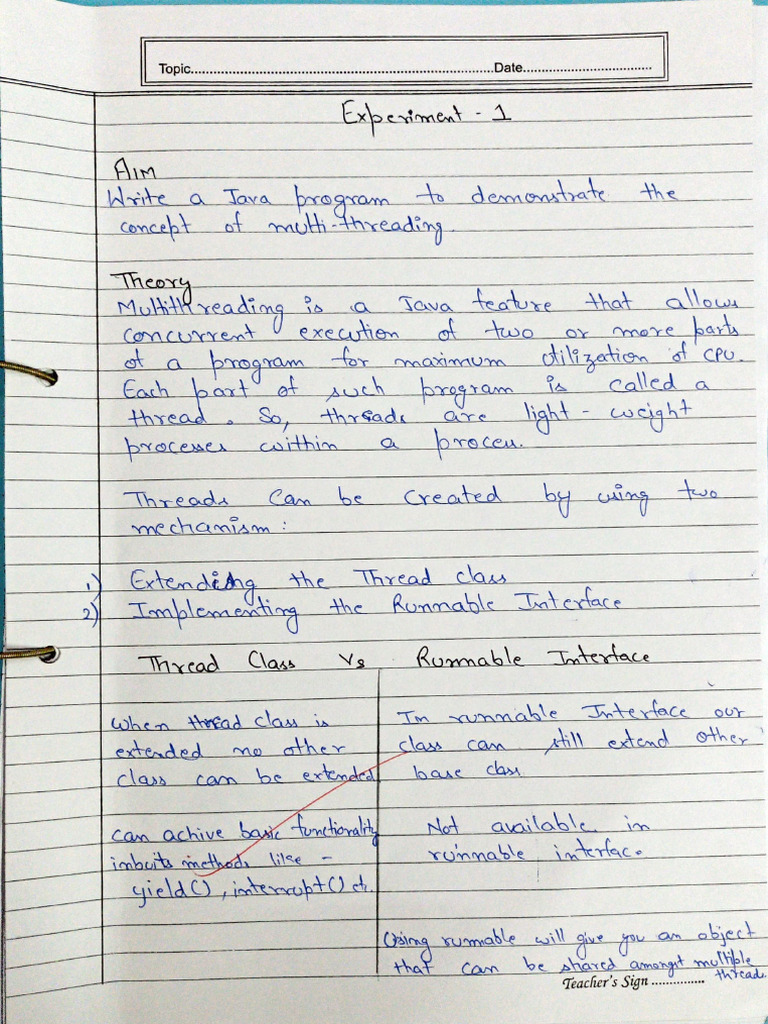 Topic..........................................................................Date................................
Experiment - 1
AIM
Write a Java program to demonstrate the
concept of multi-threading.
Theory
Multithreading is a Java feature that allows
concurrent execution of two or more parts
of a program for maximum utilization of CPU.
Each part of such program is called a
thread. So, threads are light-weight
processes within a process.
Threads can be created by using two
mechanism:
1) Extending the Thread class
2) Implementing the Runnable Interface
Thread Class Vs Runnable Interface
When thread class is
extended no other
class can be extended
can achive basic functionality
inbuits methods like -
yield(), interrupt() etc.
In runnable Interface our
class can still extend other
base class
Not available in
runnable interface.
Using runnable will give you an object
that can be shared amongst multiple
thread.
Teacher's Sign ...............